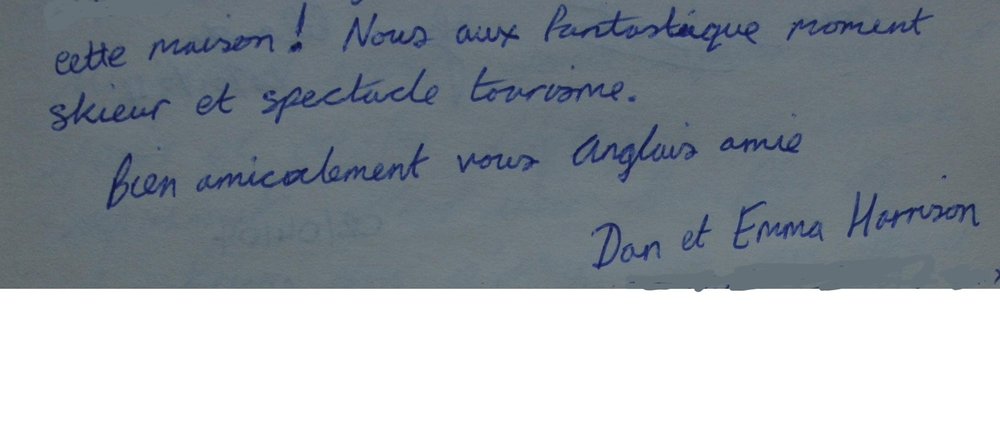 cette maison! Nous aux fantastique moment
skieur et spectacle tourisme.
Bien amicalement vous Anglais amie
Dan et Emma Harrison